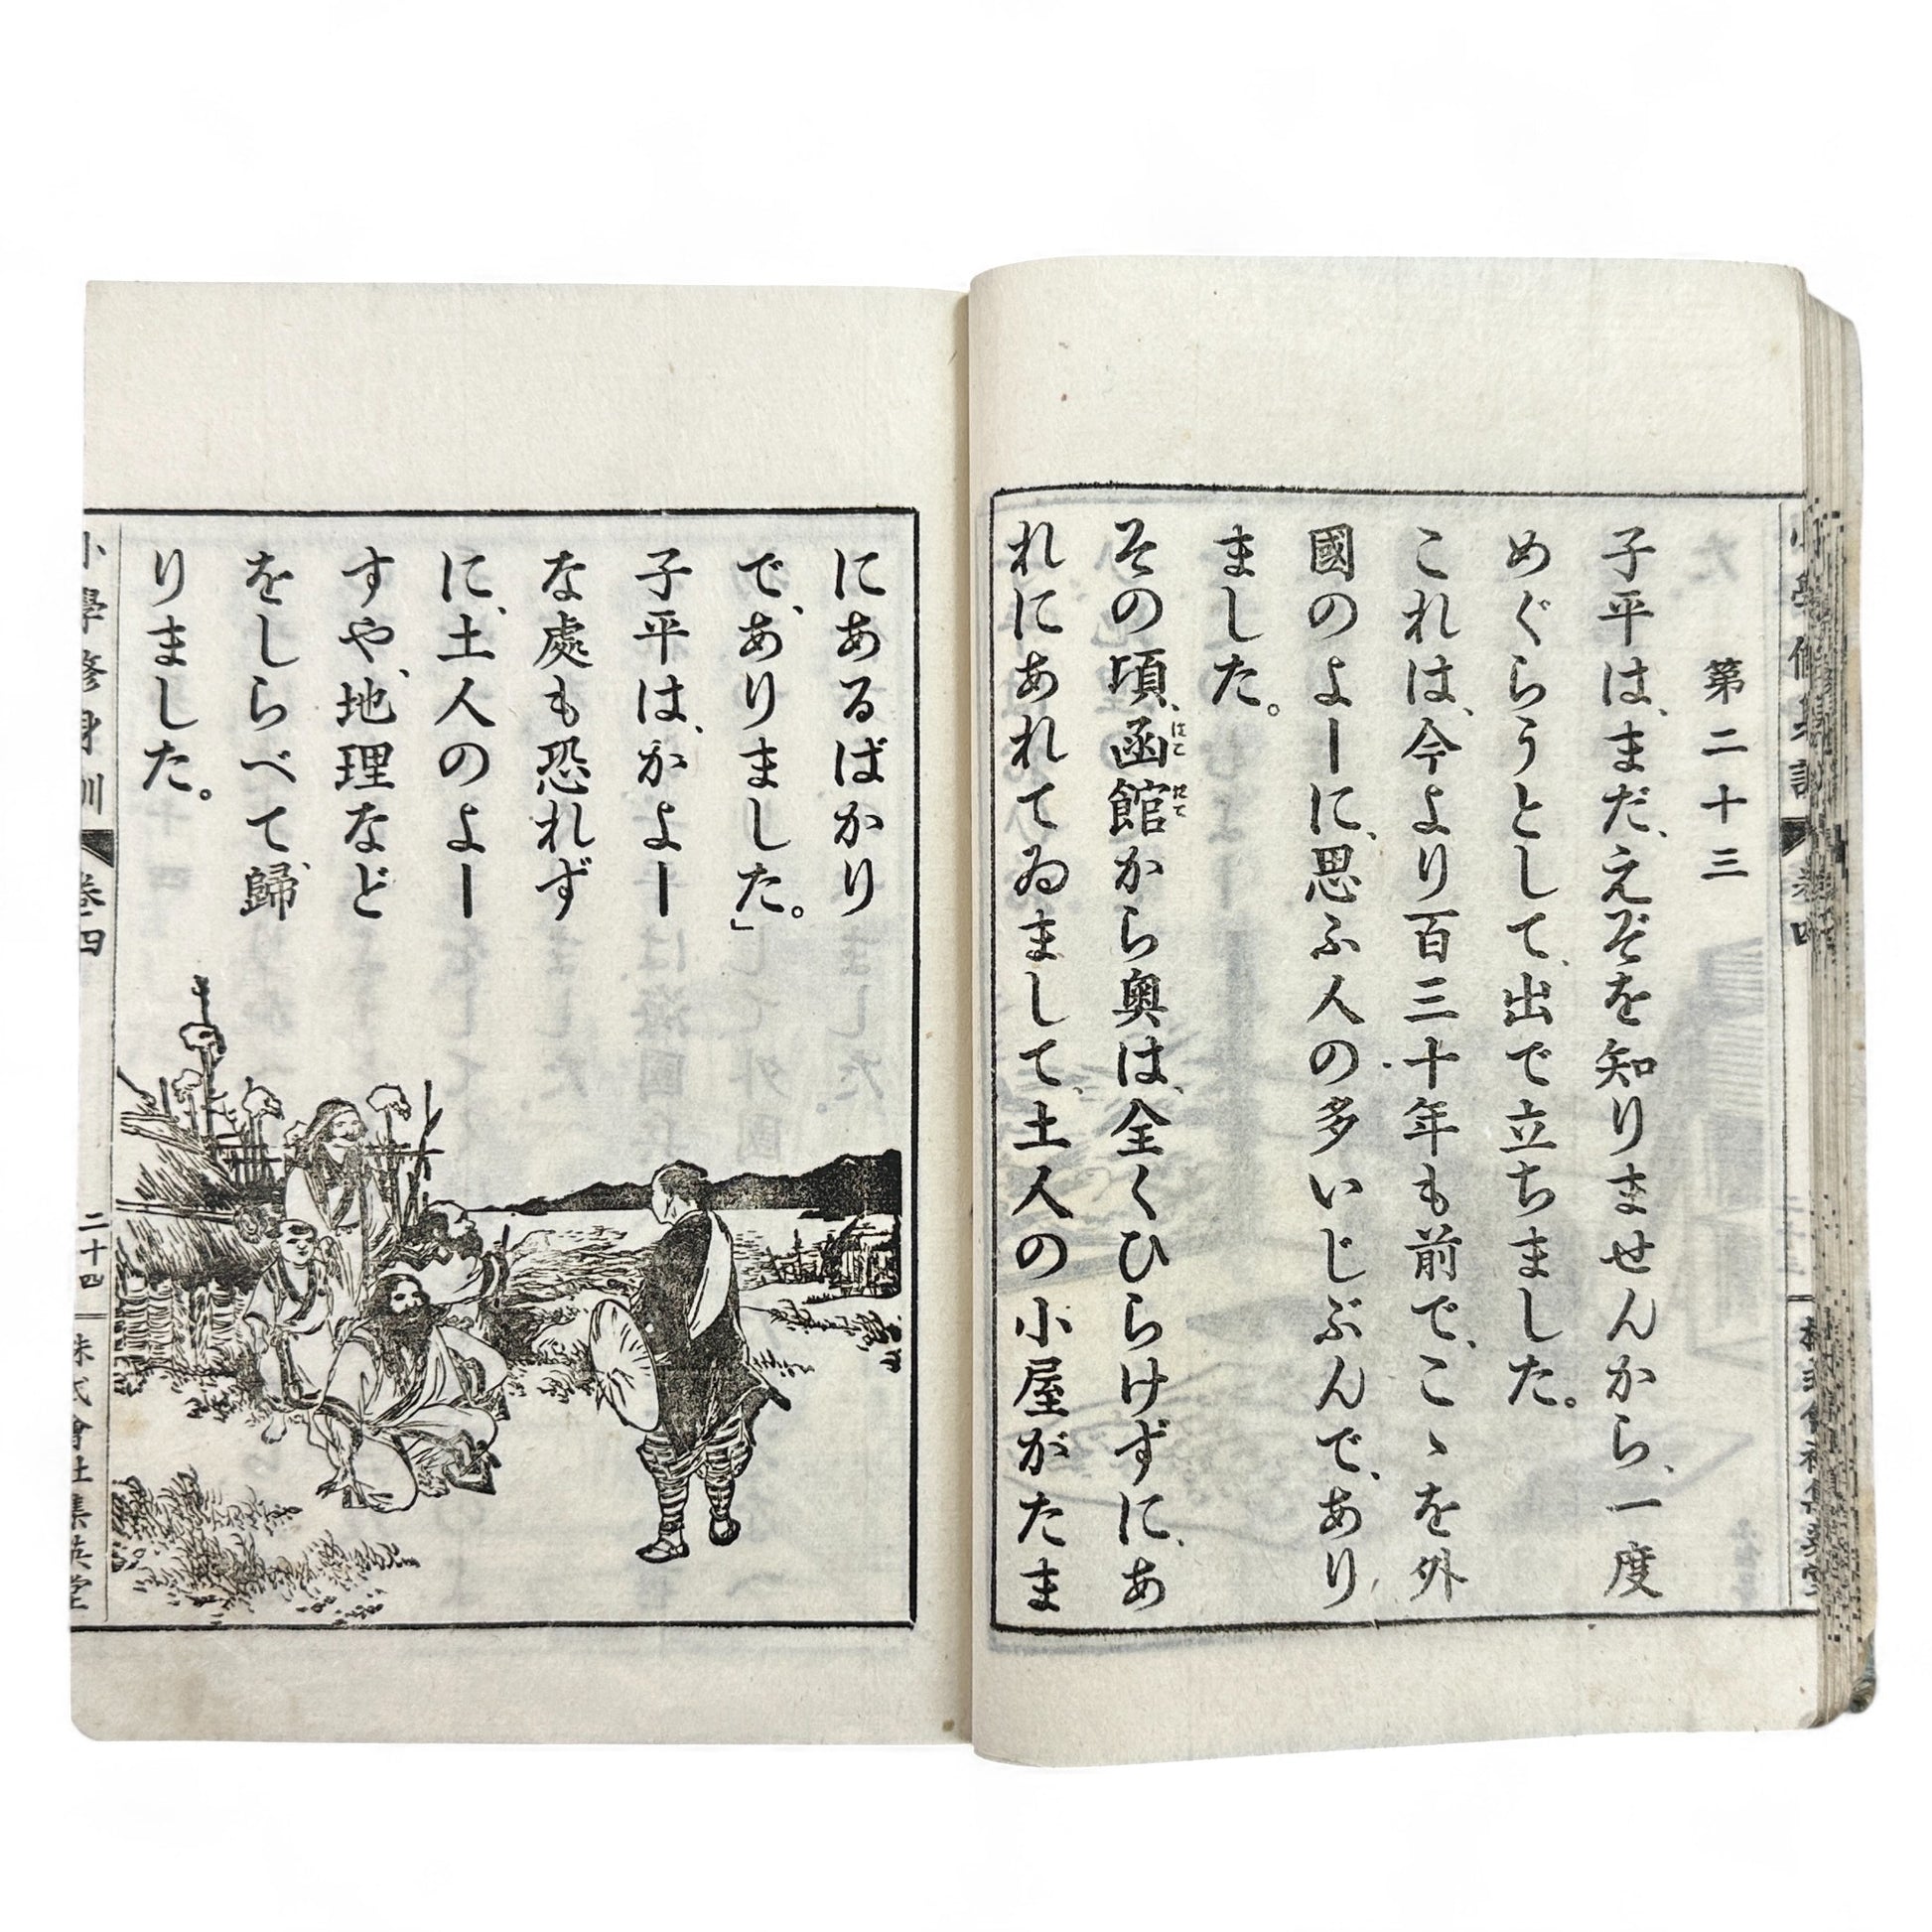 第二十三
子平は、まだ、えぞを知りませんから、一度
めぐらうとして、出で立ちました。
これは、今より百三十年も前で、こゝを外
國のよーに、思ふ人の多いじぶんで、あり
ました。
その頃、函館から奥は、全くひらけずに、あ
はこ
だて
れにあれてゐまして、土人の小屋がたま
にあるばかり
で、ありました。」
子平は、かよー
な處も恐れず
に、土人のよー
すや、地理など
をしらべて、歸
りました。
小學修身訓
卷四
二十四
株式會社集英堂